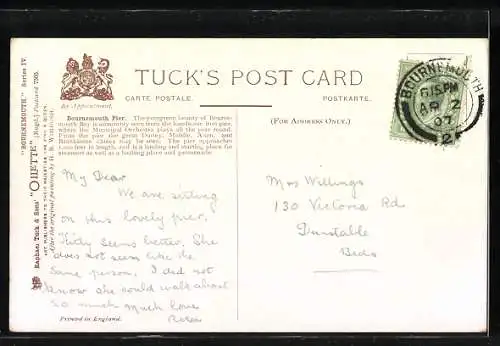 "BOURNEMOUTH." Series IV.
Raphael Tuck & Sons' "OILETTE" [Regd.] Postcard
ART PUBLISHERS TO THEIR MAJESTIES THE KING & QUEEN.
After the original painting by H. B.
By Appointment.
TUCK'S POST CARD
CARTE POSTALE. POSTKARTE.
(FOR ADDRESS ONLY.)
Bournemouth Pier. The evergreen beauty of Bourne-
mouth Bay is nowhere seen from the handsome, first pier,
where the Municipal Orchestra plays all the year round.
From the pier the great Durley, Middle, Alum, and
Branksome Chines may be seen. The pier approaches
feet in length, and is a landing and starting place for
steamers as well as a bathing place and promenade.
BOURNEMOUTH
6.15PM
AP 2
07
My Dear
We are sitting
on this lovely pier.
seems better. She
does not seem like the
same person, I did not
know she could walk about
so much much love
Rosie
Mrs Willings
130 Victoria Rd
Dunstable
Beds
Printed in England.